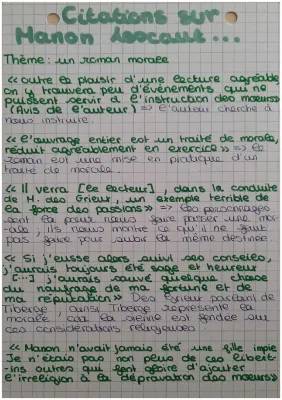 Citations sur
Manon Lescaut ...
Thème : un roman morale
« outre le plaisir d'une lecture agréable,
on y trouvera peu d'événements qui ne
puissent servir à l'instruction des moeurs »
(Avis de l'auteur) => l'auteur cherche à
nous instruire.
« l'ouvrage entier est un traité de morale,
réduit agréablement en exercice » => le
roman est une mise en pratique d'un
traité de morale.
« Il verra [le lecteur], dans la conduite
de M. des Grieux, un exemple terrible de
la force des passions » => les personnages
sont là pour nous faire passer une mor-
ale, ils nous montre ce qu'il ne faut
pas faire pour subir la même destinée
« Si j'eusse alors suivi ses conseils,
j'aurais toujours été sage et heureux
[...] j'aurais sauvé quelque chose
du naufrage de ma fortune et de
ma réputation » Des Grieux parlant de
Tiberge, ainsi Tiberge représente la
morale car la sienne est fondée sur
ces considérations religieuses
« Manon n'avait jamais été une fille impie
Je n'étais pas non plus de ces libert-
ins outrés qui font gloire d'ajouter
l'irréligion à la dépravation des moeurs »